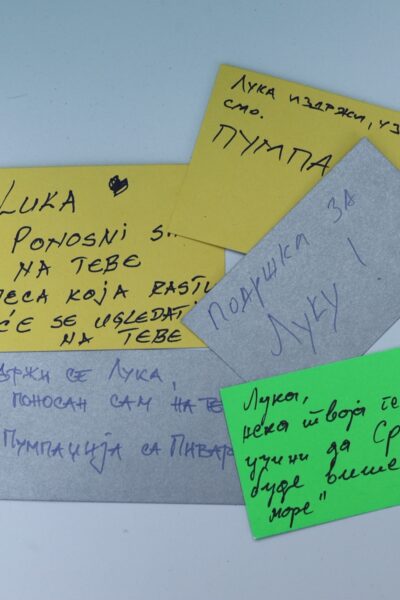 Лука издржи, уз
смо.
ПУМПА
LUKA
PONOSNI S
NA TEBE
DECA KOJA RASTU
ĆE SE UGLEDATI
NA TEBE
ПОДРШКА ЗА
Луку !
држи се Лука,
поносан сам на те
Пумпаџија са Пивар
Лука,
нека твоја
учини да Ср
буде више
море"